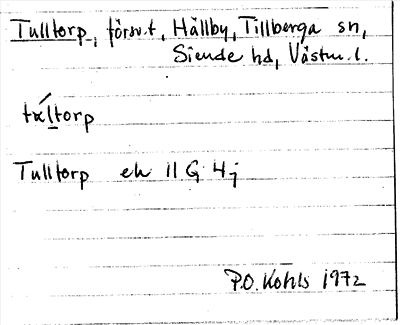 Tulltorp, försv.t, Hällby, Tillberga sn,
Siende hd, Västm. l.
táltorp
Tulltorp ek 11 G 4j
P.O. Kohls 1972